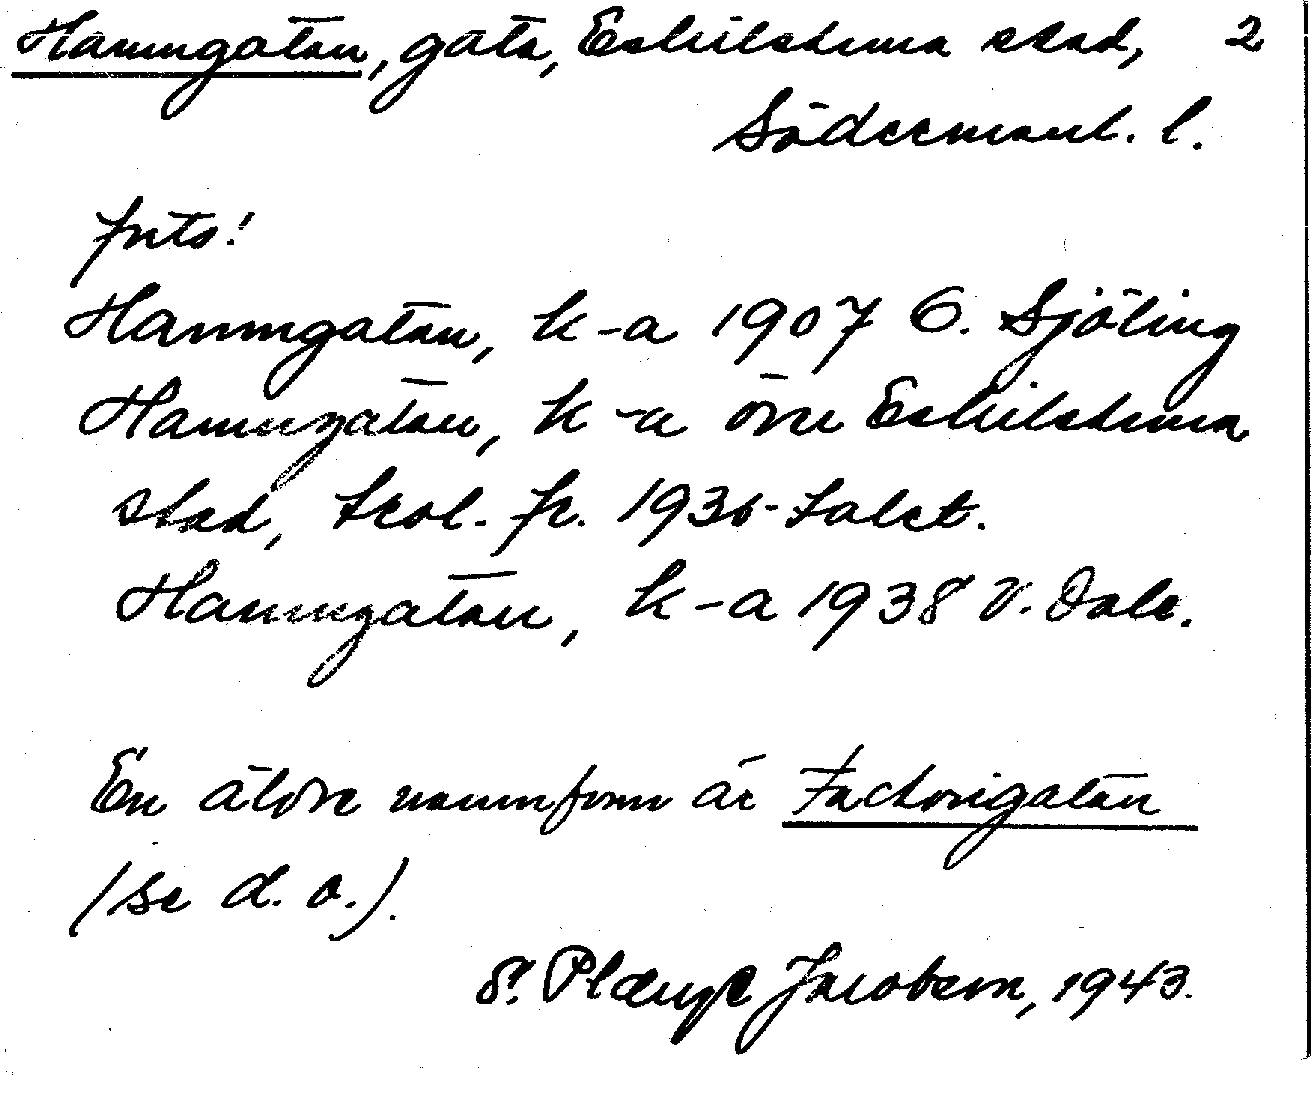 Hamngatan, gata, Eskilstuna stad, 2
Södermanl. l.
frts!
Hamngatan, k-a 1907 G. Sjöling
Hamngatan, k-a övre Eskilstuna
stad, trol. fr. 1930-talet.
Hamngatan, k-a 1938 V. Dale.
En äldre namnform är Factorigatan
(se d. o.).
S. Plænge Jacobson, 1943.